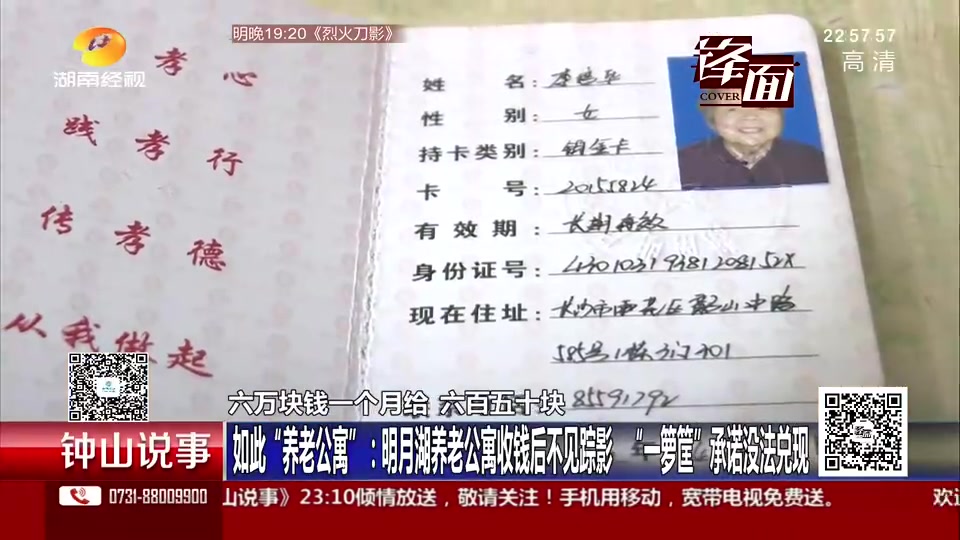 明晚19:20《烈火刀影》
22:57:57
高清
湖南经视
锋面
COVER
孝心
践孝行
传孝德
从我做起
姓名:
性别: 女
持卡类别: 铂金卡
卡号: 20155824
有效期: 长期有效
身份证号:
现在住址:
585号1栋
85591792
六万块钱一个月给 六百五十块
钟山说事
如此“养老公寓”:明月湖养老公寓收钱后不见踪影 “一箩筐”承诺没法兑现
0731-88009900
山说事》23:10倾情放送,敬请关注!手机用移动,宽带电视免费送。
欢迎